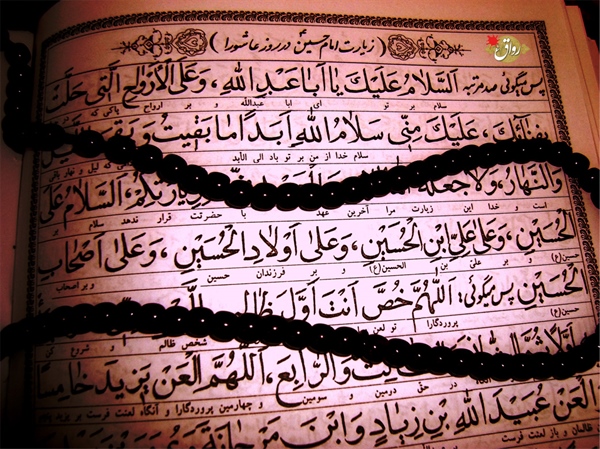 رواق
( زیارت امام حسین در روز عاشورا )
پس میگوئی صد مرتبه اَلسَّلامُ عَلَیْكَ یا اَبا عَبْدِ اللهِ، وَعَلَی الْاَرْواحِ الَّتی حَلَّتْ
سلام بر تو ای ابا عبدالله و بر ارواح پاکی که
بِفِنائِكَ، عَلَیْكَ مِنّی سَلامُ اللهِ اَبَداً ما بَقیتُ وَ بَقِیَ اللَّیْلُ
سلام خدا از من بر تو باد الی الابد
وَالنَّهارُ، وَلا جَعَلَهُ اللهُ زِیارَتِكُمْ، اَلسَّلامُ عَلَی
است و خدا این زیارت مرا آخرین عهد با حضرتت قرار ندهد سلام بر
الْحُسَیْنِ، وَعَلی عَلِیِّ ابْنِ الْحُسَیْنِ، وَعَلی اَوْلادِ الْحُسَیْنِ، وَعَلی اَصْحابِ
حسین(ع) و بر علی بن الحسین(ع) و بر فرزندان حسین و بر اصحاب
الْحُسَیْنِ پس میگوئی: اَللّهُمَّ خُصَّ اَنْتَ اَوَّلَ ظالِمٍ
حسین(ع) پروردگارا تو لعن شخص ظالم و شروع
اَوَّلاً وَالرّابِعَ، اَللّهُمَّ الْعَنْ یَزیدَ خامِساً
در حق دومین و سومین و چهارمین پروردگارا و آنگاه لعنت فرست بر یزید
وَالْعَنْ عُبَیْدَ اللهِ بْنَ زِیادٍ وَابْنَ مَرْجانَةَ وَعُمَرَ بْنَ
ظالمان و باز لعنت فرست